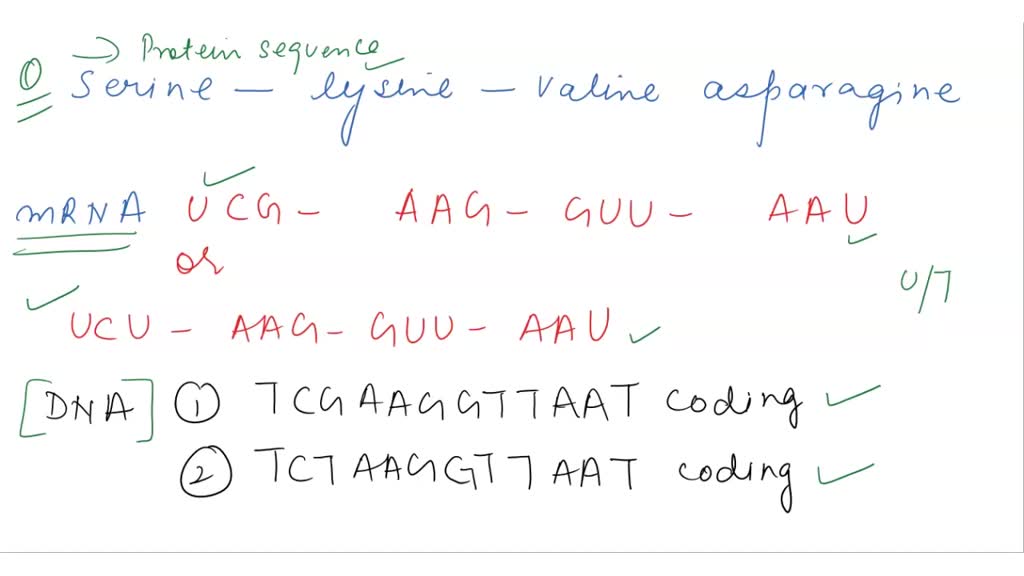 → Protein sequence
Q Serine – lysine – valine asparagine
mRNA UCG – AAG – GUU – AAU
or
U/T
UCU – AAG – GUU – AAU
[DNA] ① TCGAAGGTTAAT coding
② TCTAAGGTTAAT coding